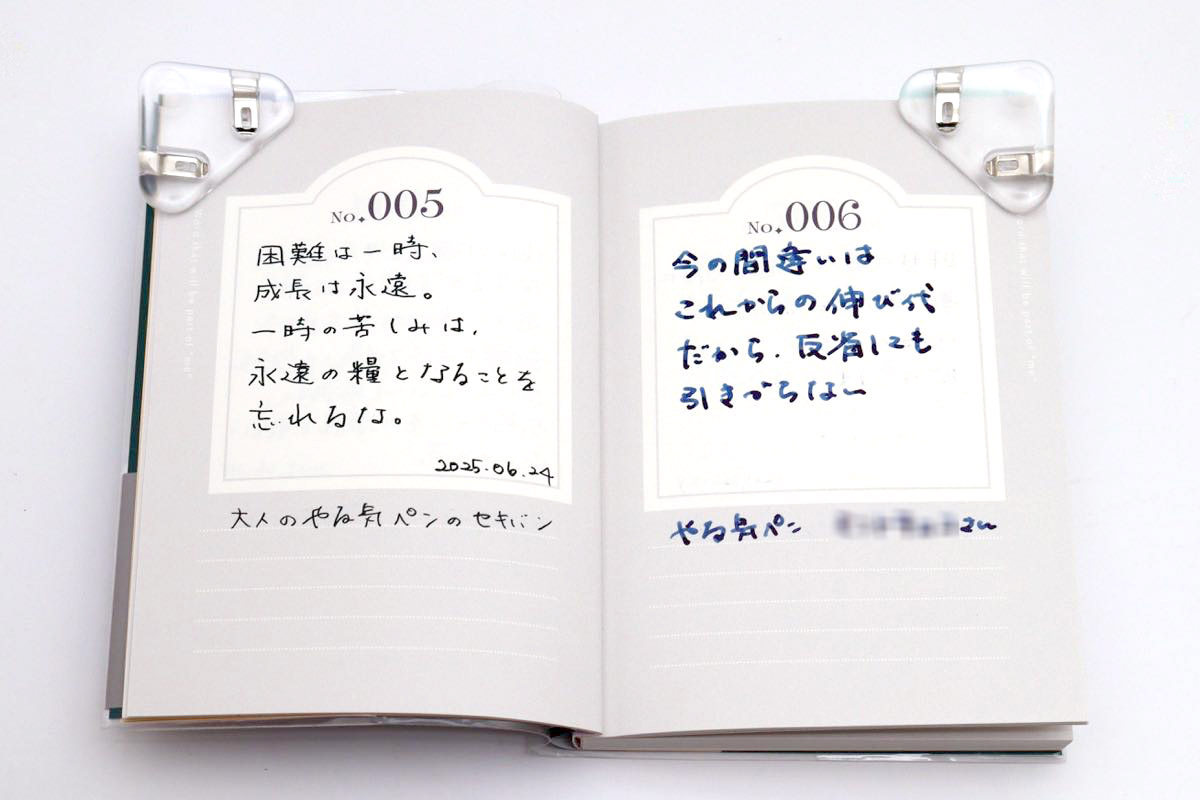 No.005
困難は一時、
成長は永遠。
一時の苦しみは、
永遠の糧となることを
忘れるな。
2025.06.24
大人のやる気ペンのセキバン
No.006
今の間違いは
これからの伸び代
だから、反省しても
引きづらない
やる気ペン さん